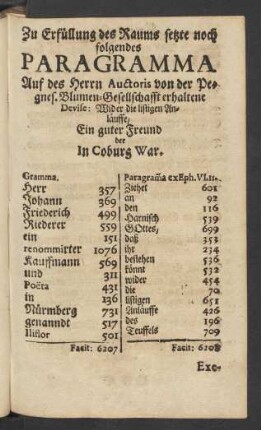 Zu Erfüllung des Raums setzte noch
folgendes
PARAGRAMMA
Auf des Herrn Auctoris von der Pe-
gnes. Blumen-Gesellschafft erhaltene
Devise: Wider die listigen An-
läuffe,
Ein guter Freund
der
In Coburg War.
Gramma.
Herr 357
Johann 369
Friederich 499
Riederer 559
ein 151
renommirter 1076
Kauffmann 569
und 311
Poëta 431
in 136
Nürmberg 731
genanndt 517
Iliflor 501
Facit: 6207
Paragram̃a ex Eph. VI. 11.
Ziehet 601
an 92
den 116
Harnisch 539
GOttes, 699
daß 353
ihr 234
bestehen 536
könnt 532
wider 454
die 70
listigen 651
Anläuffe 426
des 196
Teuffels 709
Facit: 6208
Exe-